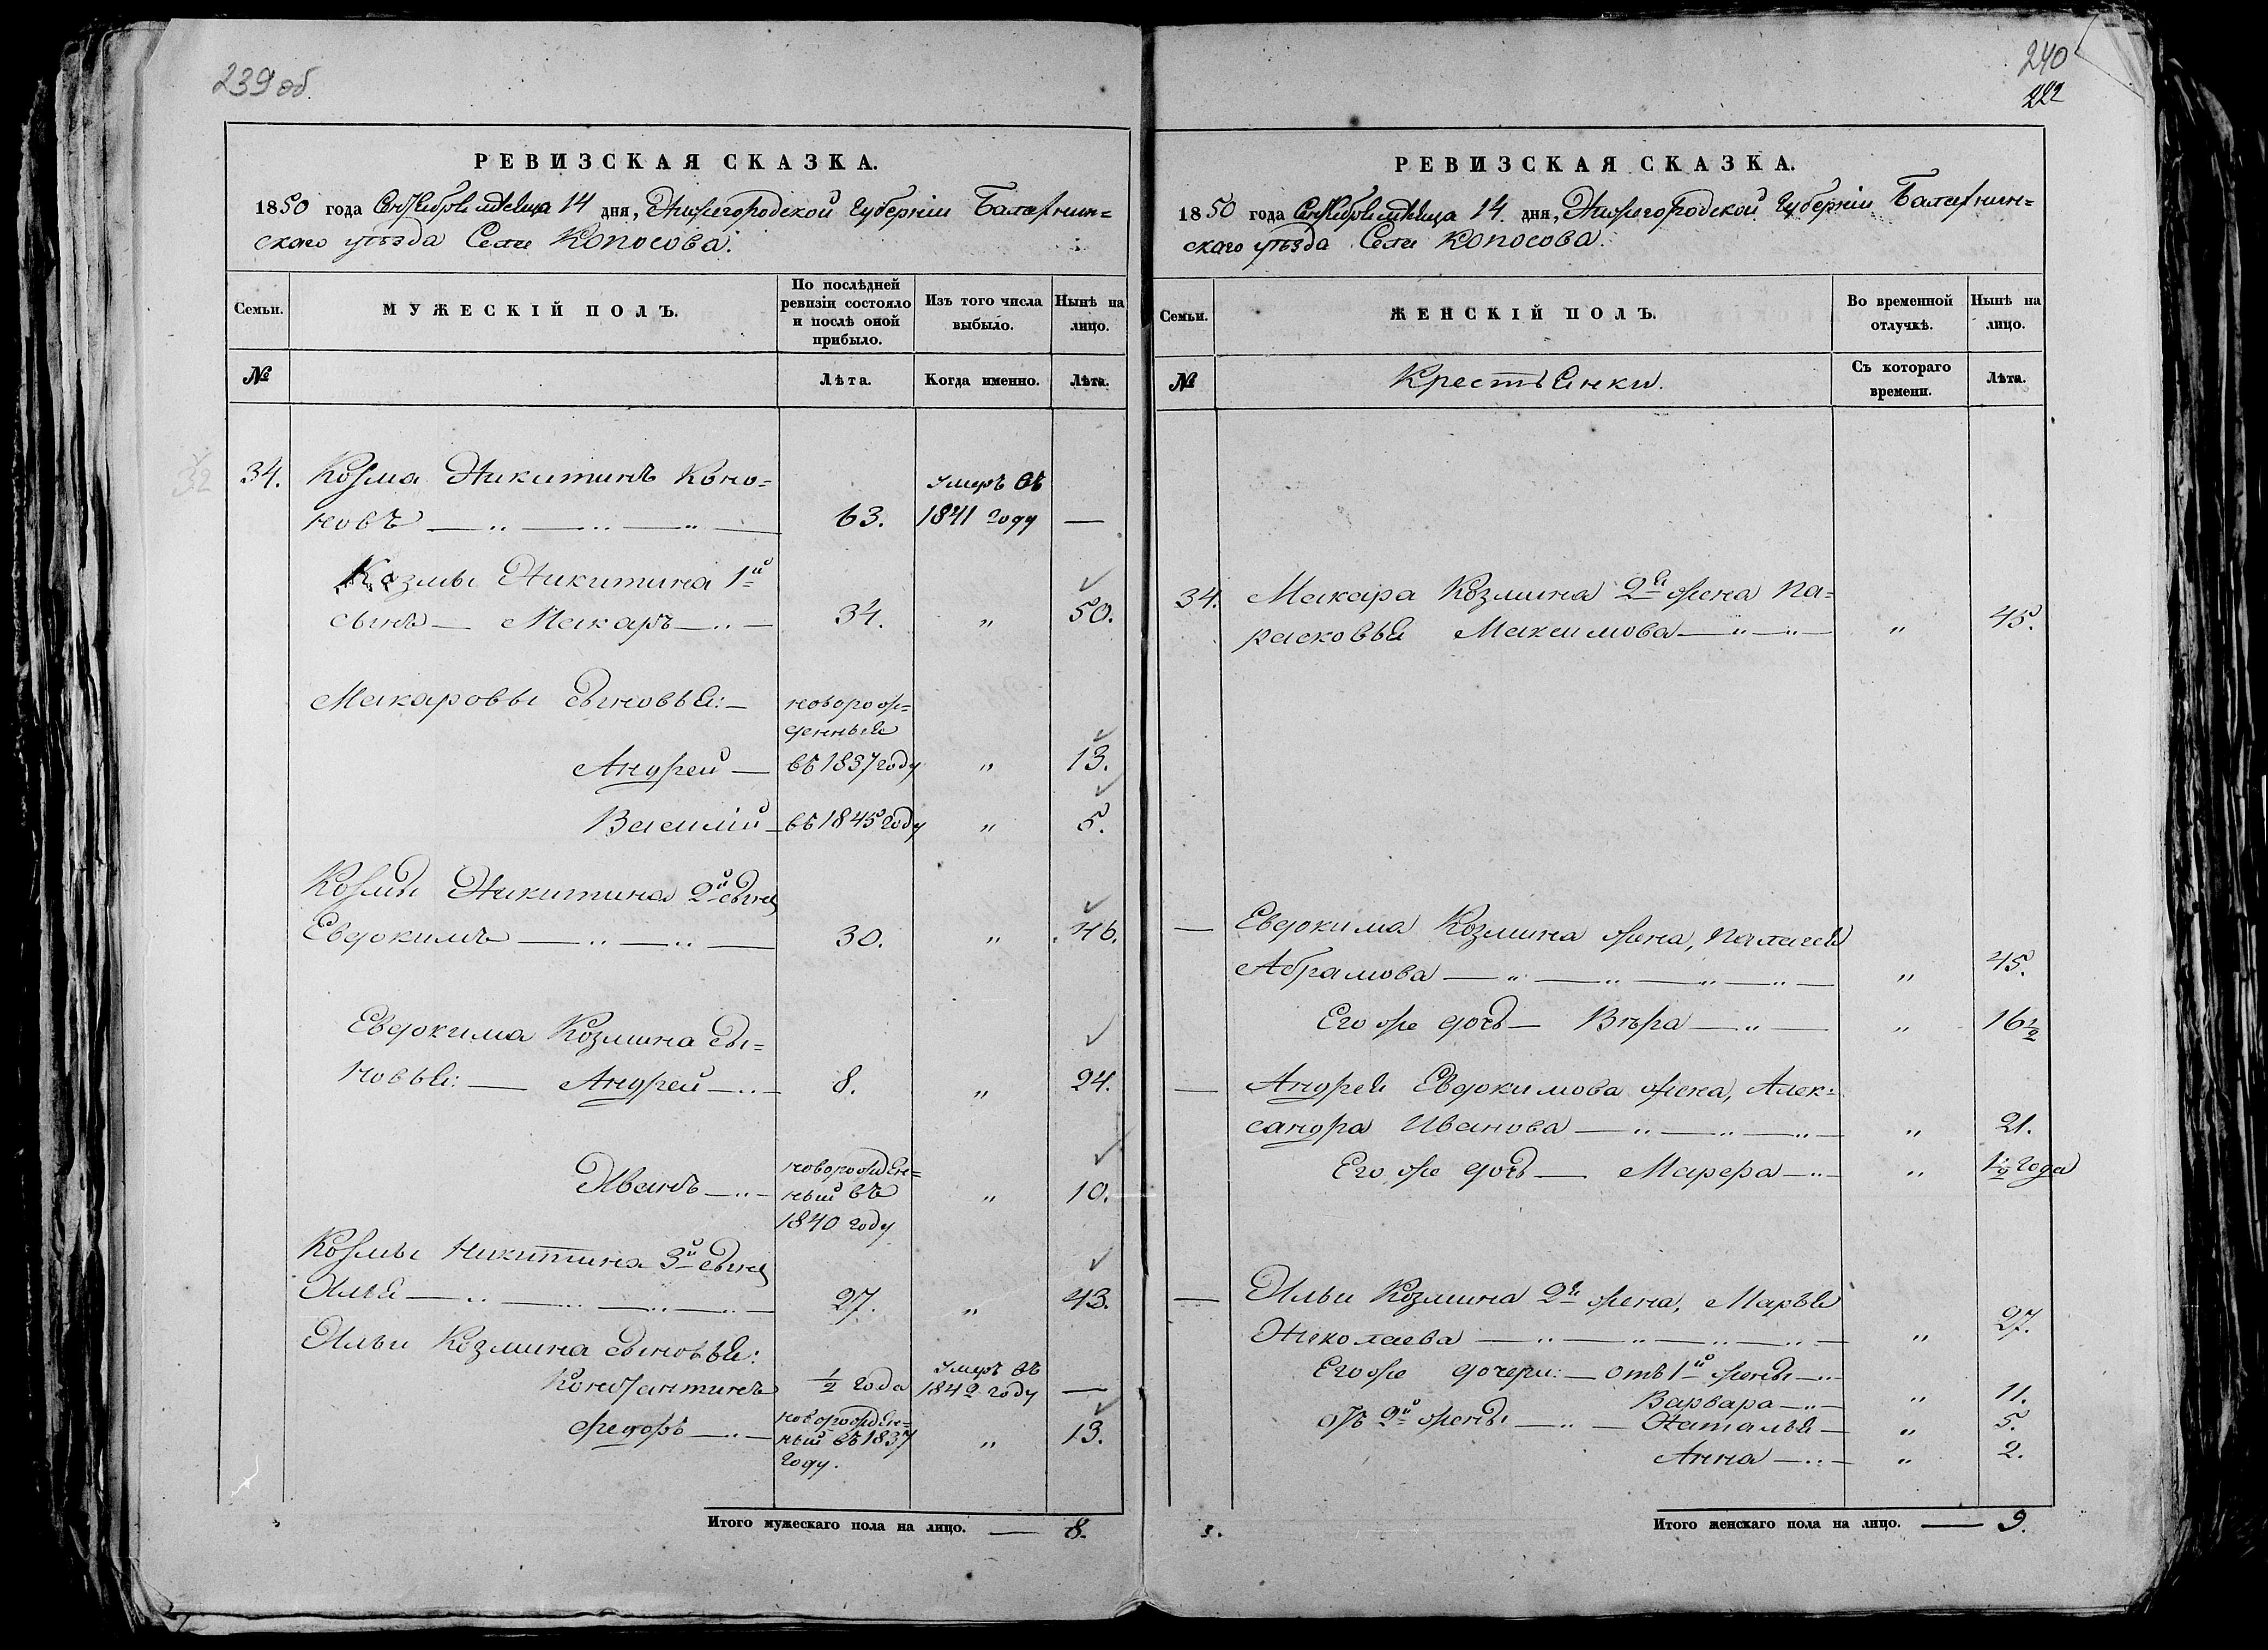 239 об.
РЕВИЗСКАЯ СКАЗКА.
1850 года Сентября месяца 14 дня, Нижегородской Губерніи Балахнин=
скаго уѣзда Села Копосова.
Семьи.
МУЖЕСКІЙ ПОЛЪ.
По послѣдней ревизіи состояло и послѣ оной прибыло.
Изъ того числа выбыло.
Нынѣ на лицо.
№
Лѣта.
Когда именно.
Лѣта.
34. Козма Никитинъ Коно=
умеръ въ
новъ 63. 1841 году —
Козмы Никитина 1й
сынъ — Макаръ 34. „ 50.
Макаровы сыновья:
новорож=
денные
Андрей — въ 1837 году „ 13.
Василій — въ 1845 году „ 5.
Козмы Никитина 2й сынъ
Евдокимъ 30. „ 46.
Евдокима Козмина сы=
новья: — Андрей 8. „ 24.
новорожден=
Иванъ ный въ „ 10.
1840 году
Козмы Никитина 3й сынъ
Илья 27. „ 43.
Ильи Козмина сыновья:
умеръ въ
Константинъ ½ года 1842 году —
новорожден=
Федоръ ный въ 1837 „ 13.
году.
Итого мужескаго пола на лицо. — 8.
240
222
РЕВИЗСКАЯ СКАЗКА.
1850 года Сентября месяца 14 дня, Нижегородской Губерніи Балахнин=
скаго уѣзда Села Копосова.
Семьи.
ЖЕНСКІЙ ПОЛЪ.
Во временной отлучкѣ.
Нынѣ на лицо.
№
Крестьянки.
Съ котораго времени.
Лѣта.
34. Макара Козмина 2я жена Па=
расковья Максимова „ 45.
— Евдокима Козмина жена, Палагея
Абрамова „ 45.
Его же дочь — Вѣра „ 16½
— Андрея Евдокимова жена, Алек=
сандра Иванова „ 21.
Его же дочь — Марфа „ 1½ года
— Ильи Козмина 2я жена, Марья
Николаева „ 27.
Его же дочери: — отъ 1й жены
Варвара „ 11.
отъ 2й жены — Наталья „ 5.
Анна „ 2.
Итого женскаго пола на лицо. — 9.